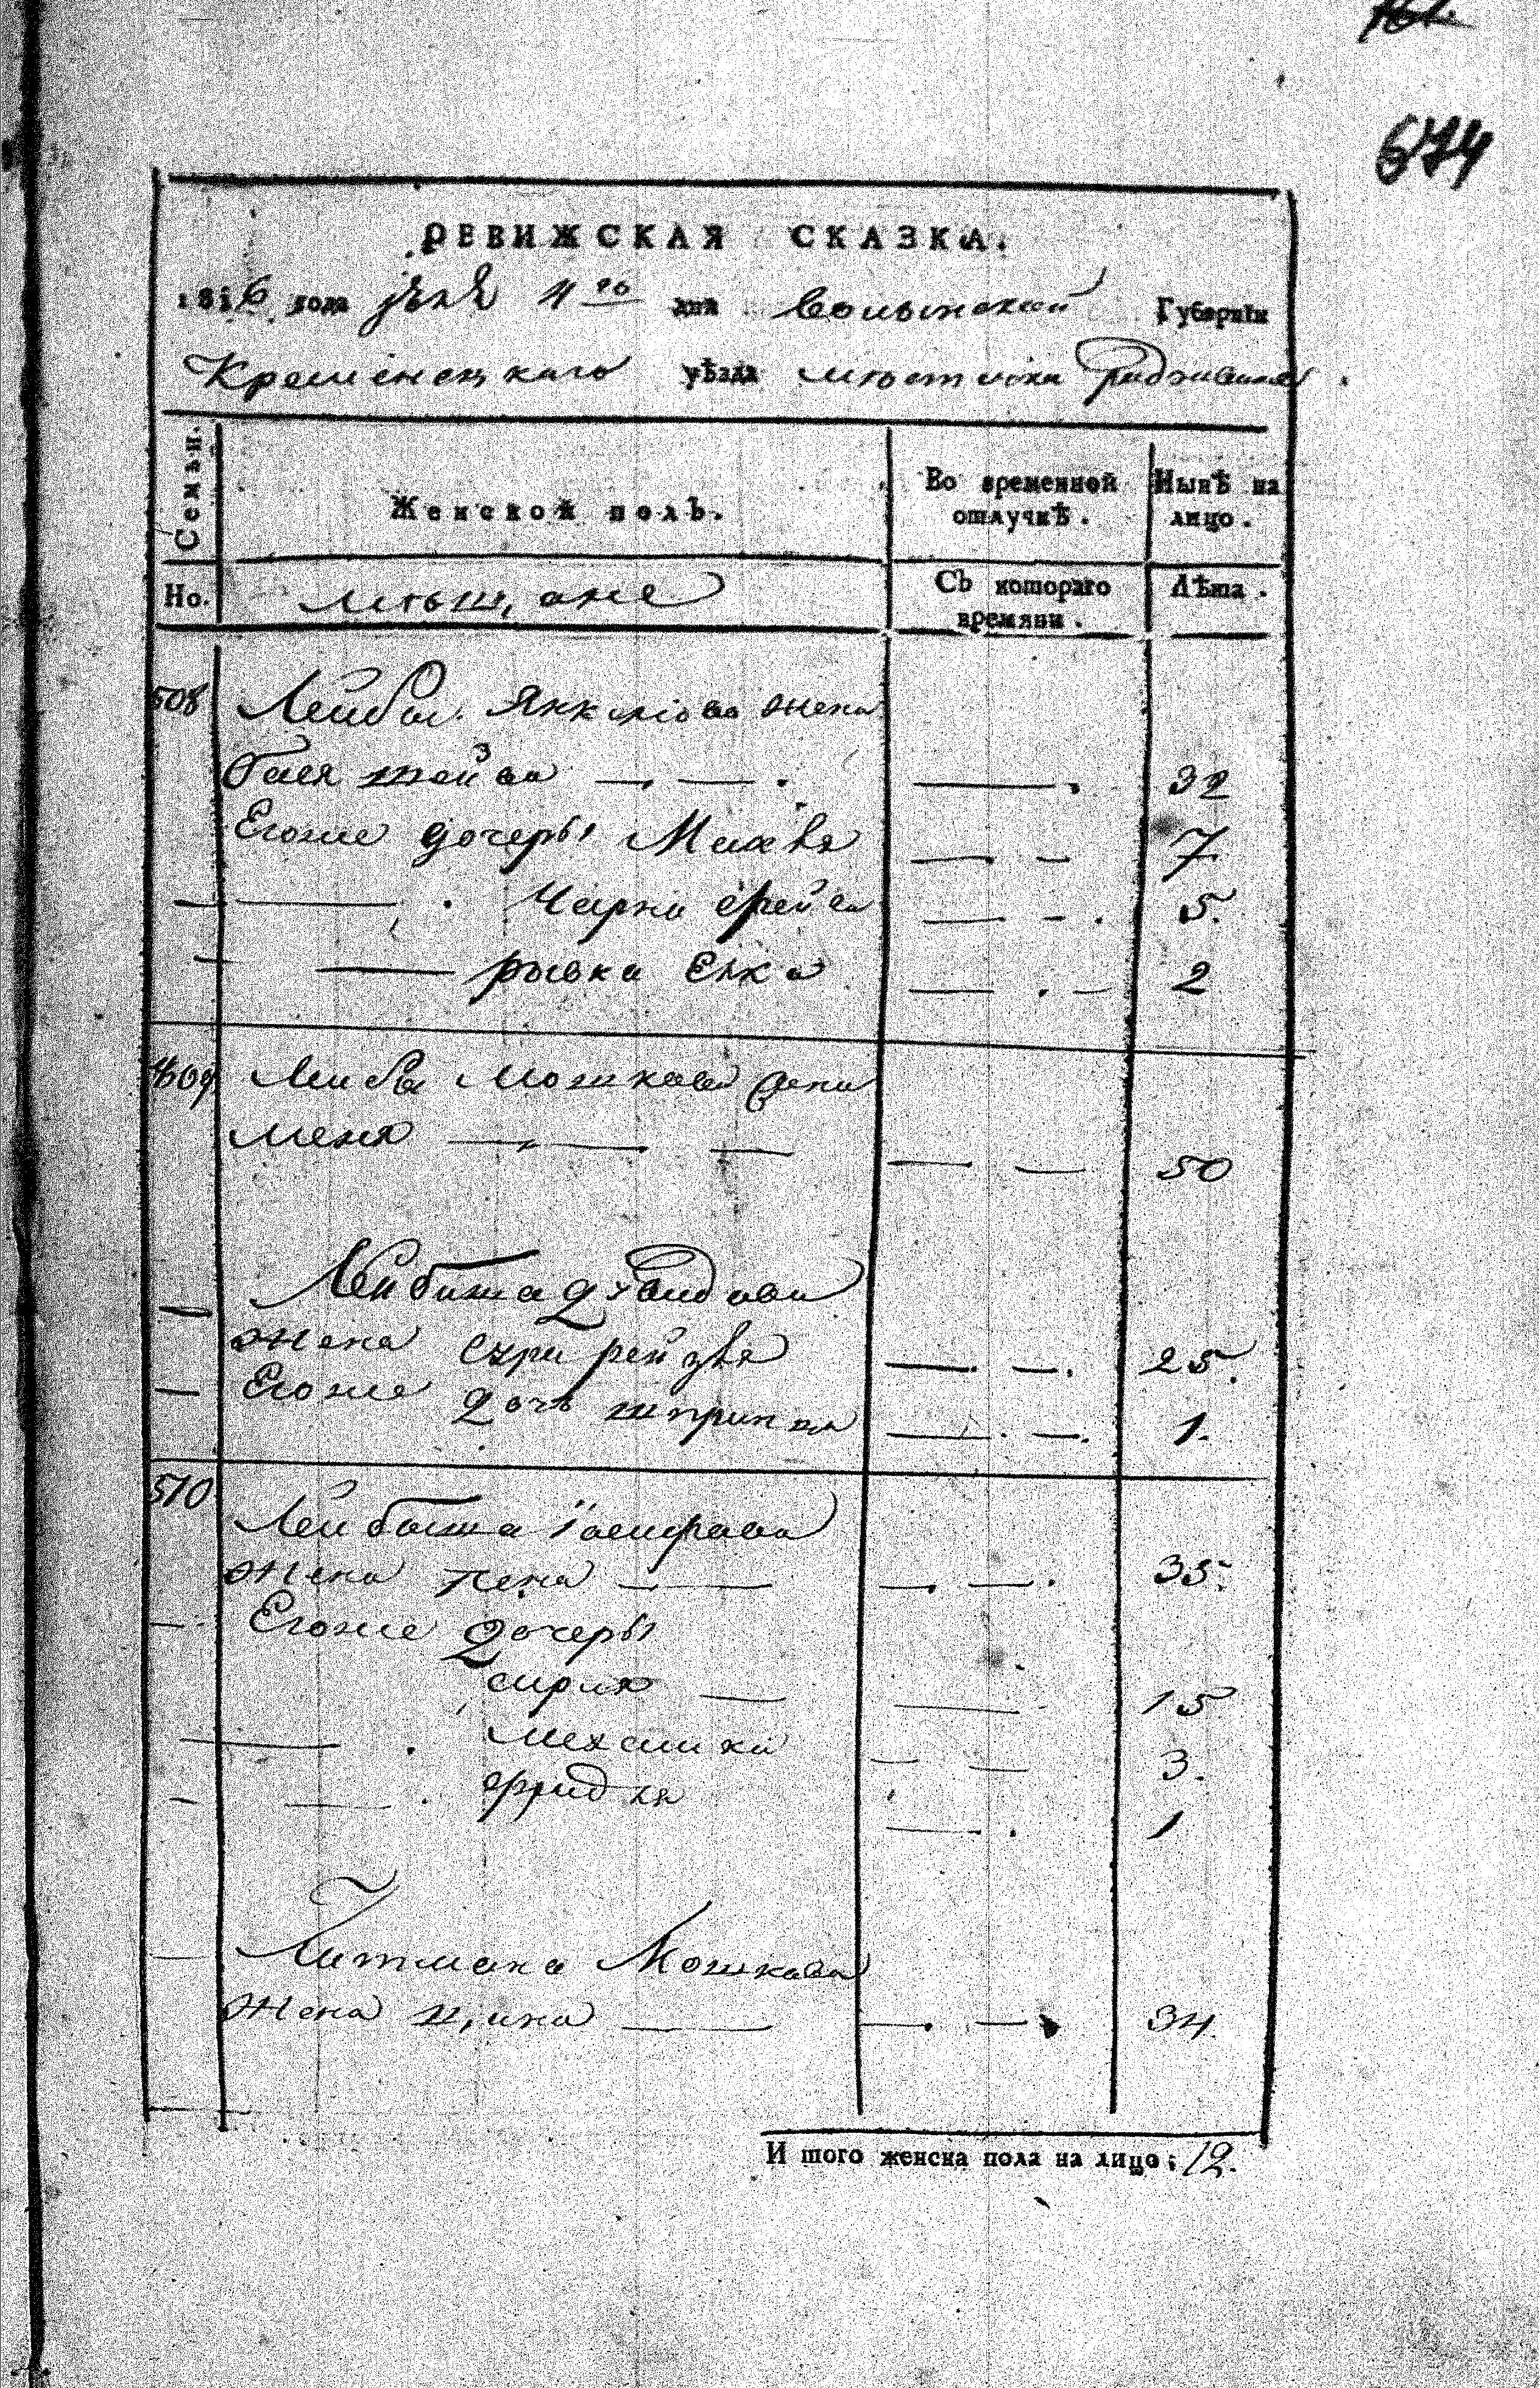 674
РЕВИЖСКАЯ СКАЗКА.
1816 года 4го дня Волынской Губерніи
Кременецкаго уѣзда мѣстечка Радзивилова
Семьи. Женской полъ. Во временной отлучкѣ. Нынѣ на лицо.
Но. мѣщане Съ котораго времяни. Лѣта.
508 Лейбы Янкелiова жена
Бася 32
Егоже дочеры Михля 7
Чарна Фрейга 5.
рывка Елка 2
509 Лейбы Мошкова жена
Меня 50
Лейбиша Давидова
жена рейзля 25.
Егоже дочь шпринца 1.
510 Лейбыша
жена пена 35.
Егоже дочеры
15
3.
фридля 1
Литмана Мошкова
жена ципа 34.
И того женска пола на лицо; 12.